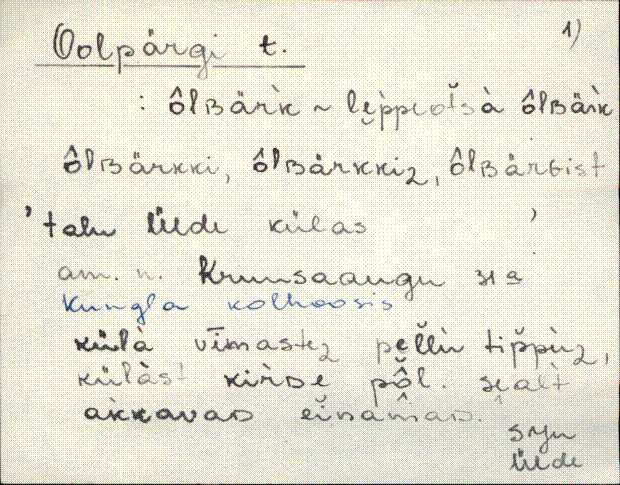 Oolpärgi t. 1)
: ôlʙäŕk ~ leppeotsà ôlʙäŕk
ôlʙärkki, ôlʙärkkiz, ôlʙärɢist
'talu Ülde külas'
am. n. Kruusaaugu
Kungla kolhoosis
külà vīmastez peĭĭlù tippùz,
külàst kirde pŏ̭l. sealt
akkavaD einamaD.
Ülde